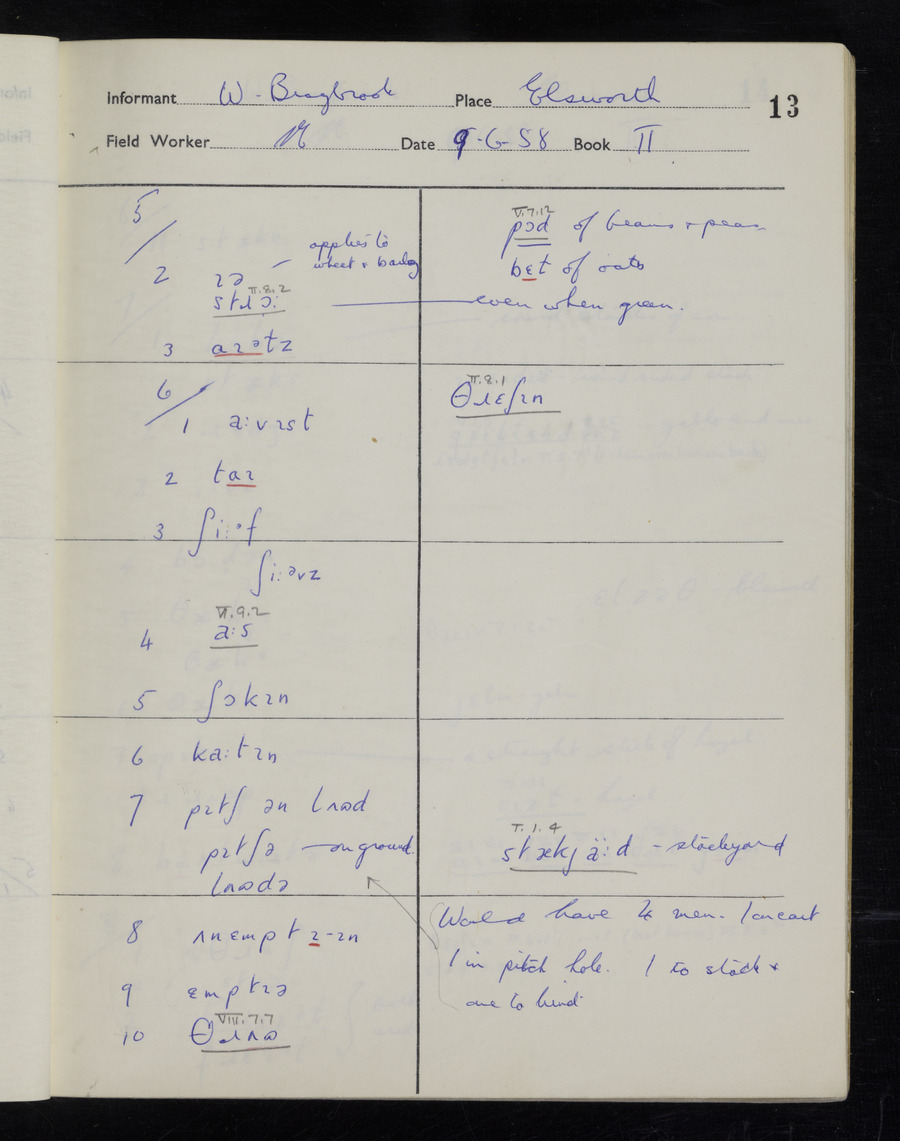 Informant W. Braybrook Place Elsworth 13
Field Worker Date 9-6-58 Book II
5/
2 ɪə — applies to wheat & barley
II.8.2
stɹɔ: — even when green.
3 aɪətz
V.7.12
pɔd of beans & peas
bɛt of oats
6/
1 a:vɪst
2 taɪ
3 ʃi:əf
ʃi:əvz
VI.9.2
4 a:s
5 ʃɔkɪn
6 ka:tɪn
7 pɪtʃ ən lʌɷd
pɪtʃə — on ground.
lʌɷdə
8 ʌnɛmptɪ-ɪn
9 ɛmptɪə
VIII.7.7
10 θɹʌɷ
II.8.1
θɹɛʃɪn
I.1.4
stækjä:d - stackyard
Would have 4 men. 1 on cart
1 in pitch hole. 1 to stack &
one to bind